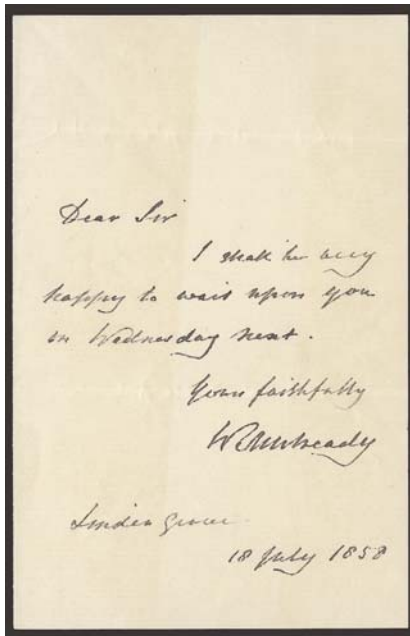 Dear Sir
I shall be very
happy to wait upon you
on Wednesday next.
Yours faithfully
W Mulready
Linden Grove
18 July 1858